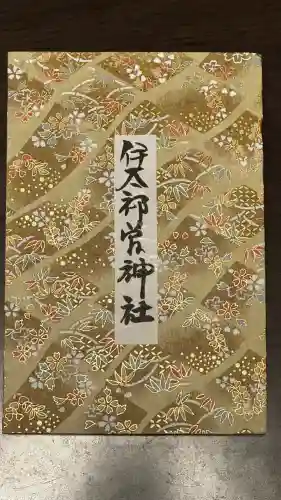 伊太祁曽神社